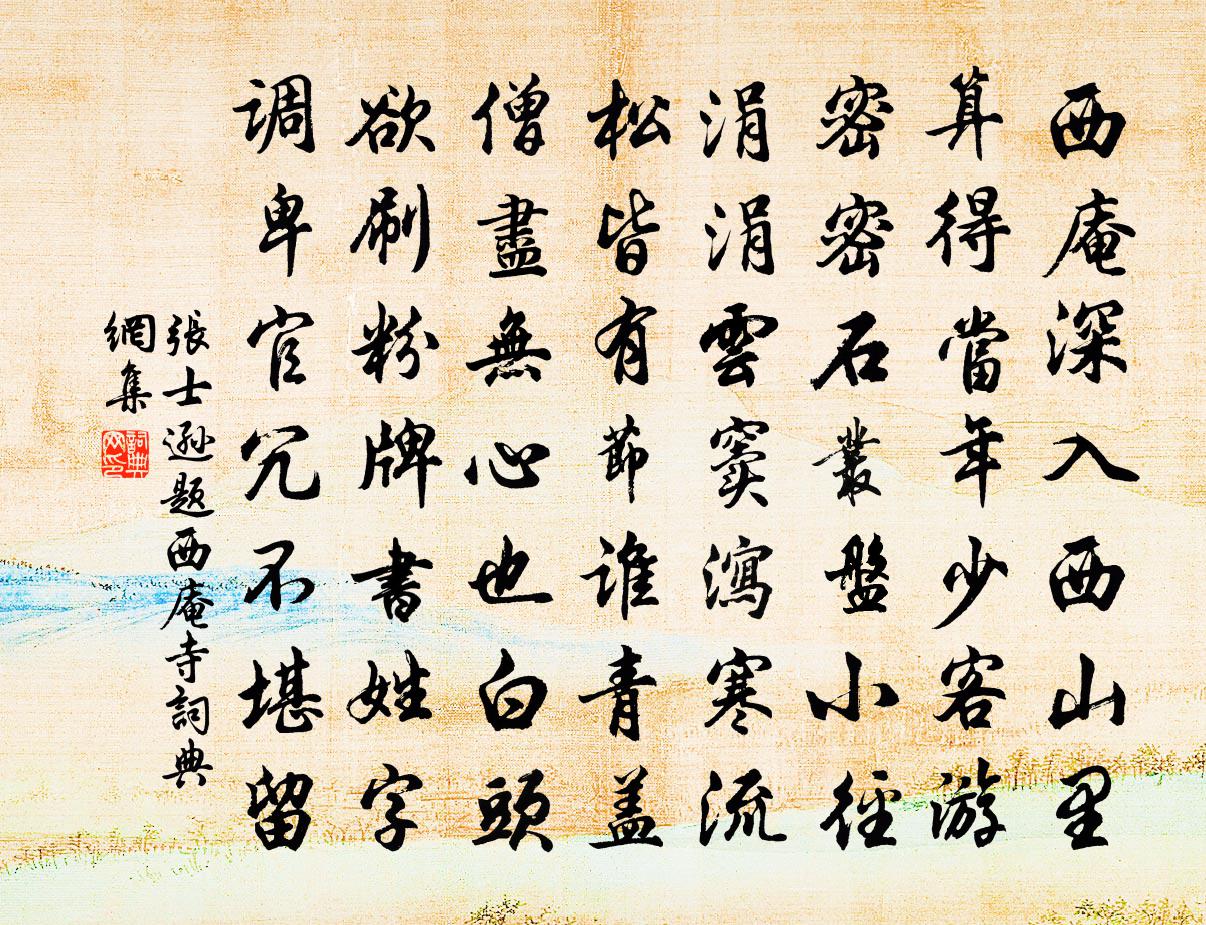 西庵深入西山里
算得當年少客游
密密石叢盤小徑
涓涓雲竇瀉寒流
松皆有節誰青蓋
僧盡無心也白頭
欲刷粉牌書姓字
调卑官冗不堪留
張士遜题西庵寺詞典
網集
詞典
网印